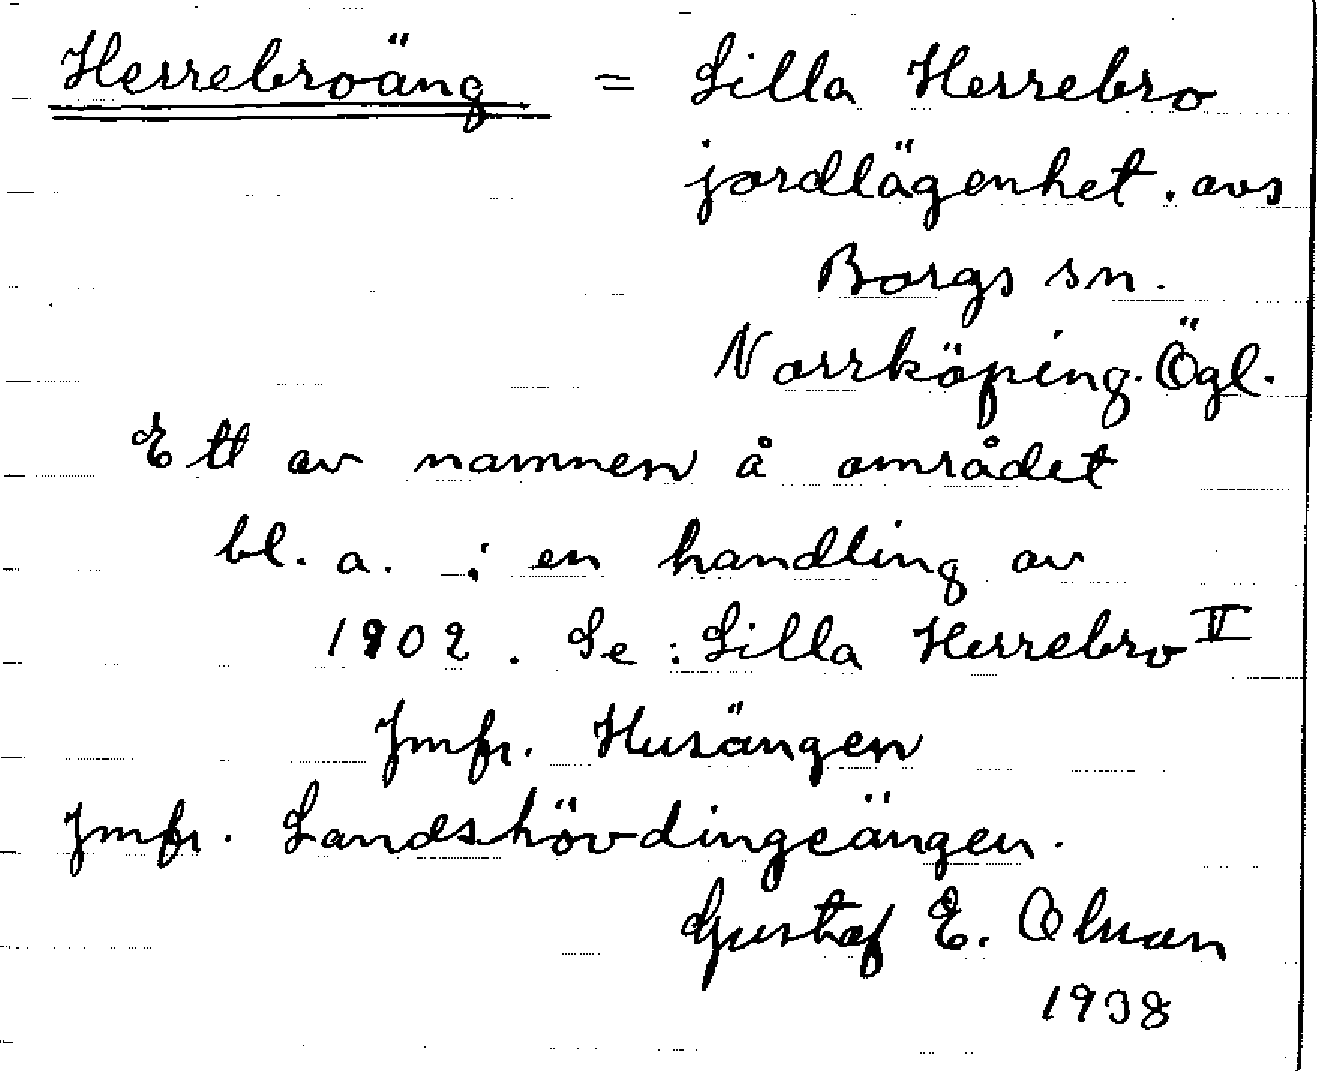 Herrebroäng = Lilla Herrebro
jordlägenhet. avs
Borgs sn.
Norrköping. Ögl.
Ett av namnen å området
bl. a. i en handling av
1902. Se: Lilla Herrebro V
Jmfr. Husängen
Jmfr. Landshövdingeängen.
Gustaf E.
1938